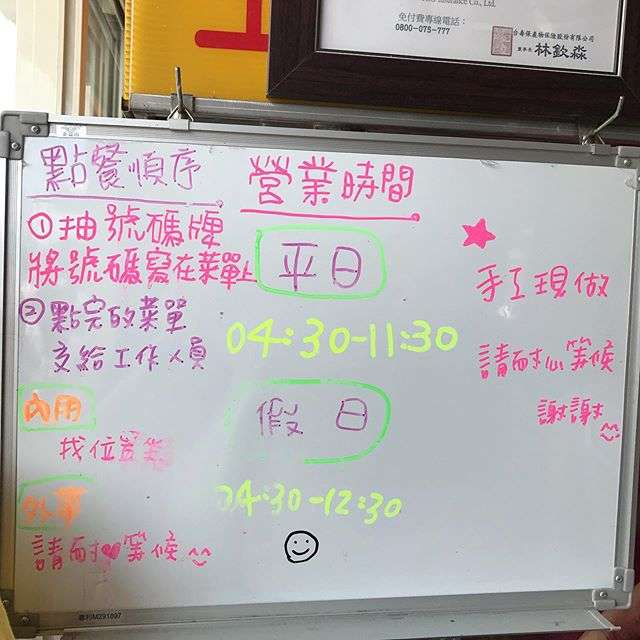 免付費專線電話：
0800-075-777
台壽保產物保險股份有限公司
董事長 林欽淼
點餐順序
①抽號碼牌
將號碼寫在菜單上
②點完的菜單
交給工作人員
內用
找位置
外帶
請耐❤等候
營業時間
平日
04:30-11:30
假日
04:30-12:30
手工現做
請耐心等候
謝謝
專利M291897